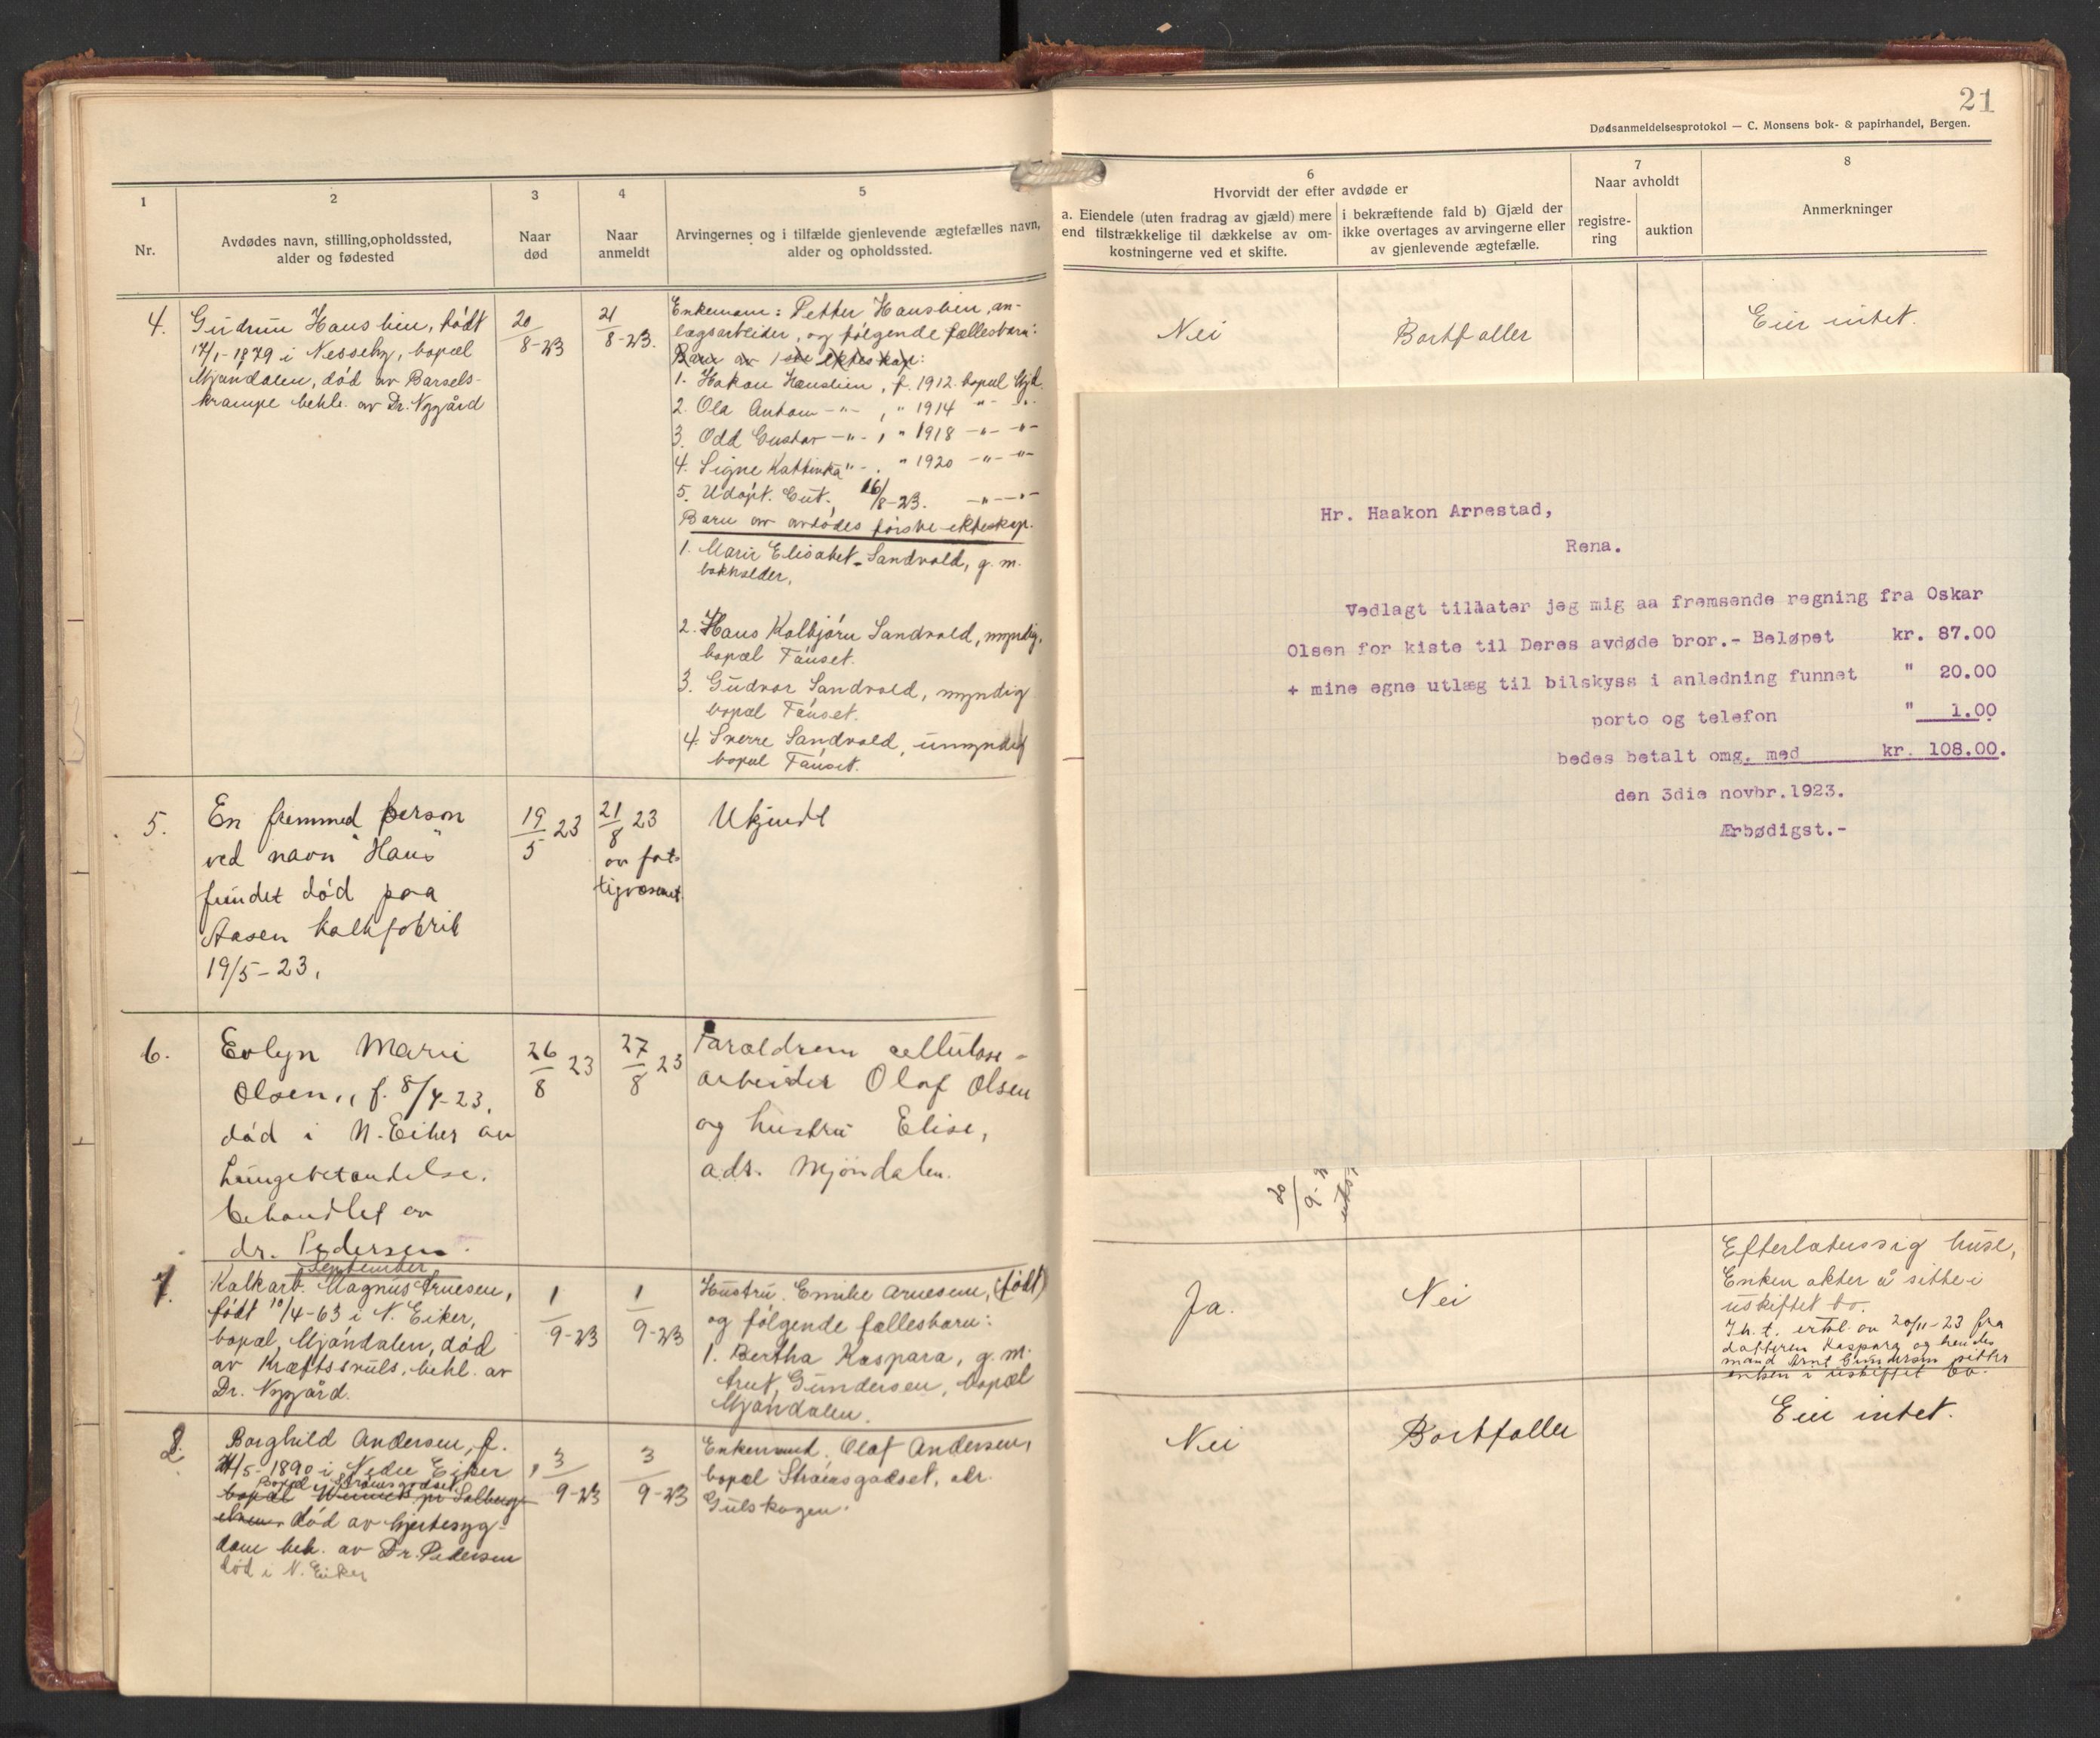 21
Dødsanmeldelsesprotokol — C. Monsens bok- & papirhandel, Bergen.
1
Nr.
2
Avdødes navn, stilling, opholdssted,
alder og fødested
3
Naar
død
4
Naar
anmeldt
5
Arvingernes og i tilfælde gjenlevende ægtefælles navn,
alder og opholdssted.
6
Hvorvidt der efter avdøde er
a. Eiendele (uten fradrag av gjæld) mere
end tilstrækkelige til dækkelse av om-
kostningerne ved et skifte.
i bekræftende fald b) Gjæld der
ikke overtages av arvingerne eller
av gjenlevende ægtefælle.
7
Naar avholdt
registre-
ring
auktion
8
Anmerkninger
4.
Gudrun Hauslien, født
17/1-1879 i Nesseby, bopæl
Mjøndalen, død av Barsels-
krampe behl. av Dr. Nygård
20/8-23
21/8-23.
Enkemann: Petter Hauslien, an-
lægsarbeider, og følgende fællesbarn:
Barn av 1ste ekteskap:
1. Hakon Hauslien, f. 1912. bopæl Mjd.
2. Ola Antam -"- , " 1914 -"- -"-
3. Odd Gustav -"- , " 1918 -"- -"-
4. Signe Kattinka "- . " 1920 -"- -"-
5. Udøpt. Gut. 16/8-23. -"- -"-
Barn av avdødes første ekteskap.
1. Marie Elisabet Sandvold, g. m.
bokholder,
2. Hans Kolbjørn Sandvold, myndig,
bopæl Fauset.
3. Gudvor Sandvold, myndig
bopæl Fauset.
4. Sverre Sandvold, umyndig
bopæl Fauset.
Nei
Bortfaller
Eier intet.
5.
En fremmed person
ved navn "Hans"
fundet død paa
Aasen kalkfabrik
19/5-23.
19/5 23
21/8 23
av fat-
tigvæsenet
Ukjendt
6.
Evlyn Marie
Olsen,, f. 8/4-23,
død i N. Eiker av
lungebetændelse.
behandlet av
dr. Pedersen.
26/8 23
27/8 23
Forældrene cellulose-
arbeider Olaf Olsen
og hustru Elise,
adr. Mjøndalen.
September
1.
Kalkarb. Magnus Arnesen,
født 10/4-63 i N. Eiker,
bopæl, Mjøndalen, død
av Kræftssvuls, behl. av
Dr. Nygård.
1/9-23
1/9-23
Hustru. Emilie Arnesen, (født)
og følgende fællesbarn:
1. Bertha Kaspara, g. m.
Arnt Gundersen, bopæl
Mjøndalen.
Ja.
Nei
Efterlater sig huse,
Enken akter å sitte i
uskiftet bo.
Ih. t. erkl. av 20/11-23 fra
datteren Kaspara og hendes
mand Arnt Gundersen sitter
enken i uskiftet bo.
2.
Borghild Andersen, f.
11/5-1890 i Nedre Eiker
Bopæl i Strømsgodset.
død av hjertesyg-
dom beh. av Dr. Pedersen
død i N. Eiker
3/9-23
3/9-23
Enkemand. Olaf Andersen,
bopæl Strømsgodset, adr.
Gulskogen.
Nei
Bortfaller
Eier intet.
Hr. Haakon Arnestad,
Rena.
Vedlagt tillater jeg mig aa fremsende regning fra Oskar
Olsen for kiste til Deres avdøde bror.- Beløpet kr. 87.00
+ mine egne utlæg til bilskyss i anledning funnet " 20.00
porto og telefon " 1.00
bedes betalt omg. med kr. 108.00.
den 3die novbr.1923.
Ærbødigst.-